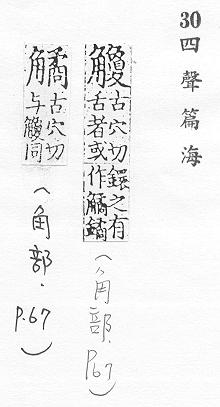 30 四聲篇海
觼 古穴切鐶之有
舌者或作鐍
(角部. P.67)
古穴切
与觼同
(角部. P.67)